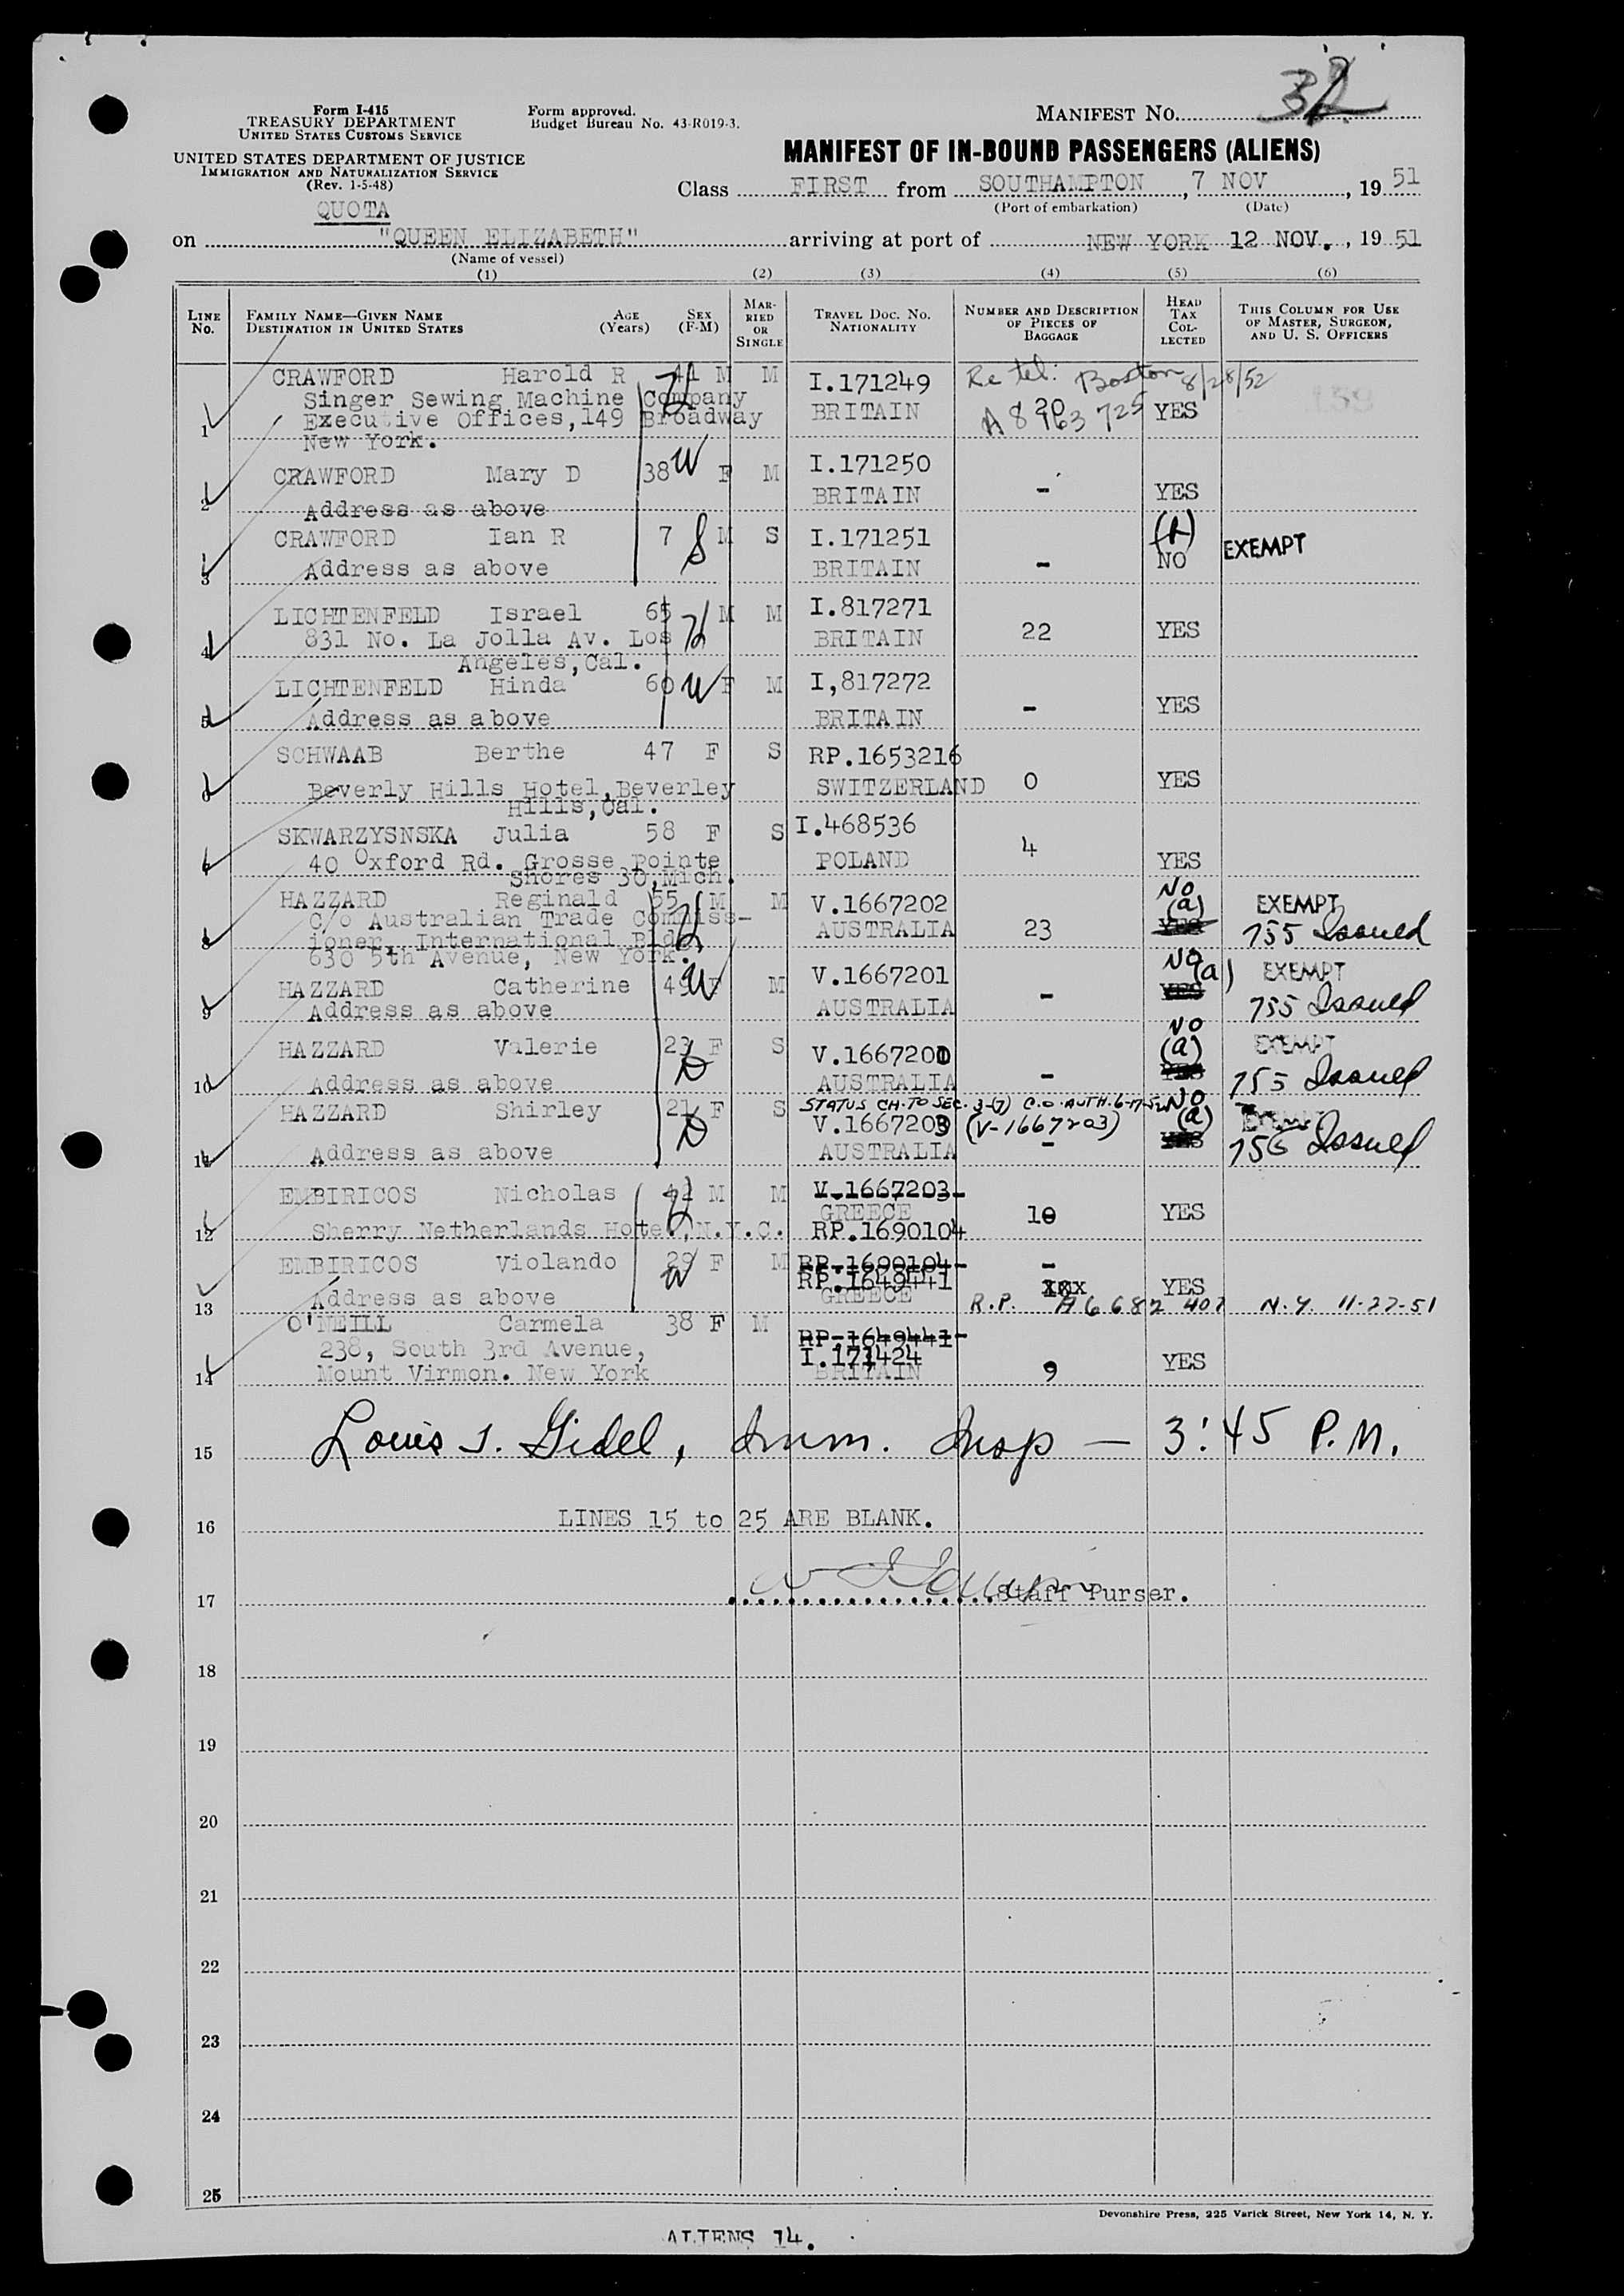 32
Form I-415
TREASURY DEPARTMENT
UNITED STATES CUSTOMS SERVICE
Form approved.
Budget Bureau No. 43-R019-3.
MANIFEST NO.
UNITED STATES DEPARTMENT OF JUSTICE
IMMIGRATION AND NATURALIZATION SERVICE
(Rev. 1-5-48)
MANIFEST OF IN-BOUND PASSENGERS (ALIENS)
QUOTA
Class FIRST from SOUTHAMPTON, 7 NOV, 19 51
(Port of embarkation) (Date)
on "QUEEN ELIZABETH" arriving at port of NEW YORK 12 NOV., 19 51
(Name of vessel)
(1) (2) (3) (4) (5) (6)
LINE NO. FAMILY NAME—GIVEN NAME DESTINATION IN UNITED STATES AGE (Years) SEX (F-M) MARRIED OR SINGLE TRAVEL DOC. NO. NATIONALITY NUMBER AND DESCRIPTION OF PIECES OF BAGGAGE HEAD TAX COLLECTED THIS COLUMN FOR USE OF MASTER, SURGEON, AND U. S. OFFICERS
CRAWFORD Harold R 41 M M I.171249 Re tel: Boston 8/28/52
Singer Sewing Machine Company
1 Executive Offices, 149 Broadway BRITAIN 20 A8 963 725 YES
New York.
CRAWFORD Mary D 38 W F M I.171250
2 Address as above BRITAIN - YES
CRAWFORD Ian R 7 S M S I.171251 EXEMPT
3 Address as above BRITAIN - NO
LICHTENFELD Israel 65 H M M I.817271
4 831 No. La Jolla Av. Los BRITAIN 22 YES
Angeles, Cal.
LICHTENFELD Hinda 60 W F M I,817272
5 Address as above BRITAIN - YES
SCHWAAB Berthe 47 F S RP.1653216
6 Beverly Hills Hotel, Beverley SWITZERLAND 0 YES
Hills, Cal.
SKWARZYSNSKA Julia 58 F S I.468536
7 40 Oxford Rd. Grosse Pointe POLAND 4 YES
Shores 30, Mich.
HAZZARD Reginald 55 M M V.1667202 NO (a) EXEMPT
C/o Australian Trade Commiss-
8 ioner, International Bldg. AUSTRALIA 23 YES 755 Issued
630 5th Avenue, New York.
HAZZARD Catherine 49 W F M V.1667201 NO (a) EXEMPT
9 Address as above AUSTRALIA - YES 755 Issued
HAZZARD Valerie 23 F S V.1667200 NO (a) EXEMPT
10 Address as above AUSTRALIA - YES 755 Issued
STATUS CH. TO SEC. 3-(7) C.O. AUTH. 6-17-52
HAZZARD Shirley 21 F S V.1667203 (V-1667203) NO (a) EXEMPT
11 Address as above AUSTRALIA - YES 755 Issued
EMBIRICOS Nicholas 42 M M V.1667203
GREECE 10 YES
12 Sherry Netherlands Hotel, N.Y.C. RP.1690104
EMBIRICOS Violando 29 W F M RP.1690104 -
RP.1649441 YES
13 Address as above GREECE R.P. A6 682 407 N.Y. 11-27-51
O'NEILL Carmela 38 F M RP-1649441
238, South 3rd Avenue, I.171424
14 Mount Virmon. New York BRITAIN 9 YES
15 Louis J. Gidel, Imm. Insp — 3:45 P.M.
16 LINES 15 to 25 ARE BLANK.
17 Staff Purser.
18
19
20
21
22
23
24
25
Devonshire Press, 225 Varick Street, New York 14, N. Y.
ALIENS 14.